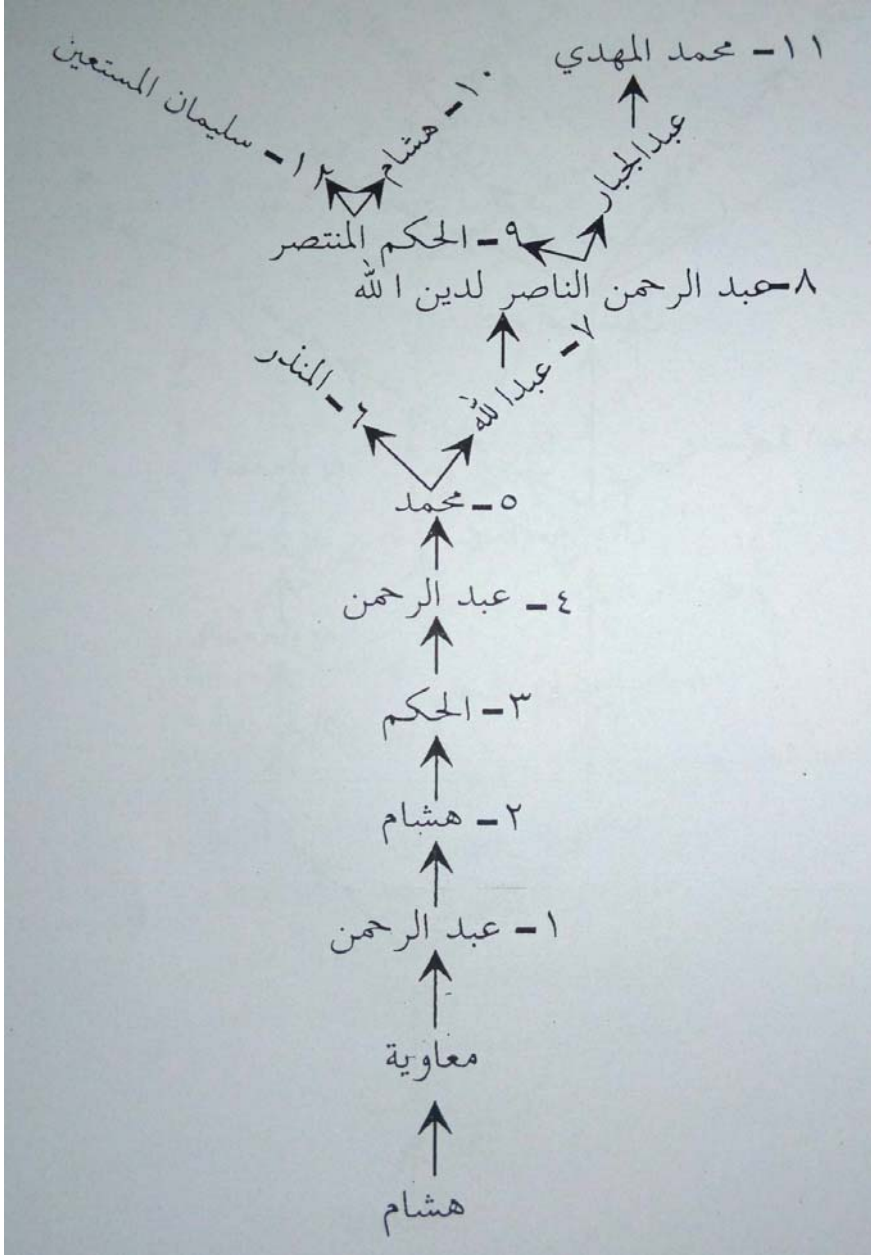 ١١ - محمد المهدي
١٠ - هشام
١٢ - سليمان المستعين
عبدالجبار
٩ - الحكم المنتصر
٨ - عبد الرحمن الناصر لدين الله
٧ - عبدالله
٦ - المنذر
٥ - محمد
٤ - عبد الرحمن
٣ - الحكم
٢ - هشام
١ - عبد الرحمن
معاوية
هشام